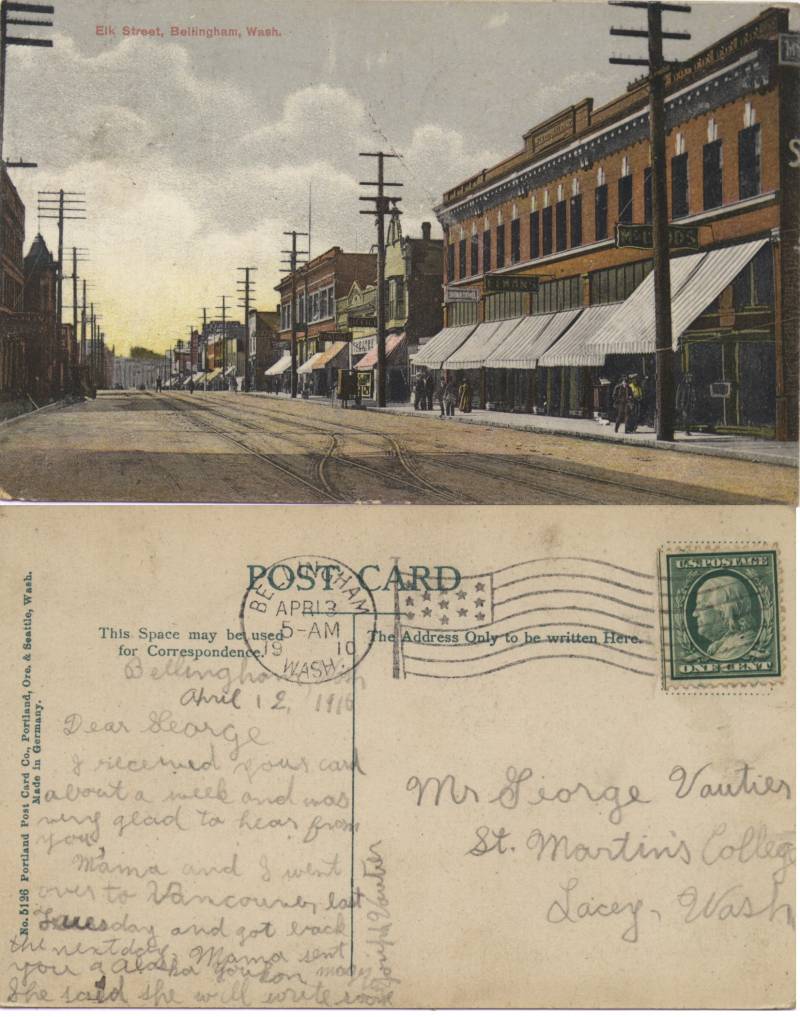 Elk Street, Bellingham, Wash.
POST CARD
BELLINGHAM
APR 13
5-AM
1910
WASH.
U.S. POSTAGE
ONE CENT
This Space may be used
for Correspondence.
The Address Only to be written Here.
No. 5126 Portland Post Card Co., Portland, Ore. & Seattle, Wash.
Made in Germany.
Bellingham, Wash
April 12, 1910
Dear George
I received your card
about a week and was
very glad to hear from
you.
Mama and I went
over to Vancouver last
Tuesday and got back
the next day. Mama sent
you a Alaska Youkon magz
She said she will write soon
Joseph Vautier
Mr George Vautier
St. Martin's College
Lacey, Wash